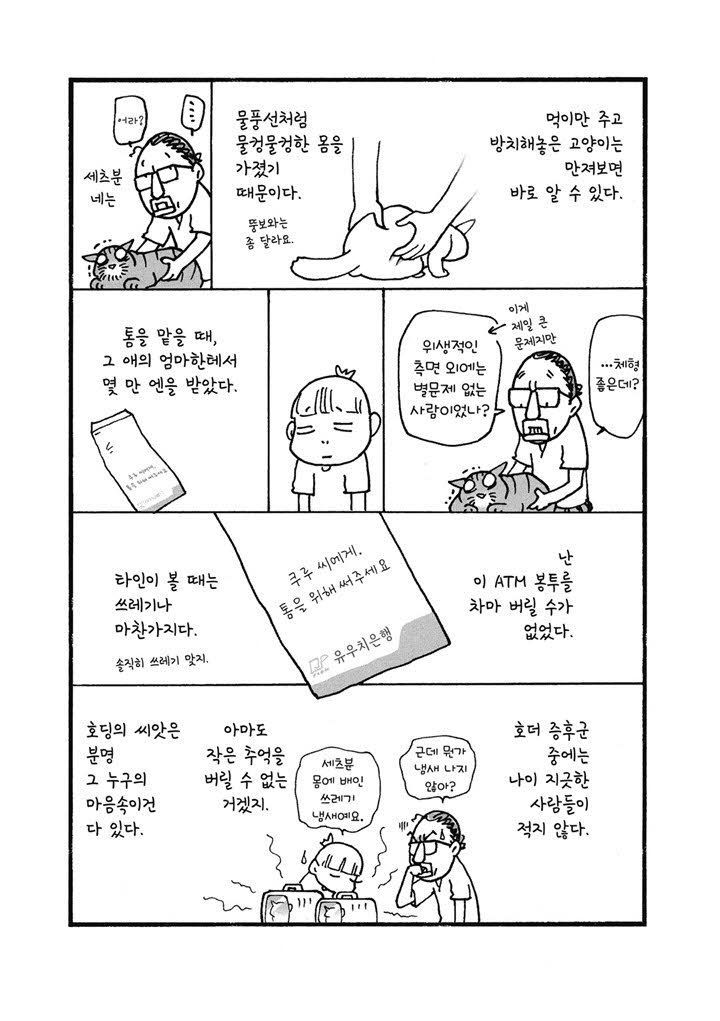 먹이만 주고
방치해놓은 고양이는
만져보면
바로 알 수 있다.
물풍선처럼
물컹물컹한 몸을
가졌기
때문이다.
뚱보와는
좀 달라요.
어라?
세츠분
네는
…체형
좋은데?
이게
제일 큰
문제지만
위생적인
측면 외에는
별문제 없는
사람이었나?
톰을 맡을 때,
그 애의 엄마한테서
몇 만 엔을 받았다.
쿠루 씨에게.
톰을 위해 써주세요
난
이 ATM 봉투를
차마 버릴 수가
없었다.
쿠루 씨에게.
톰을 위해 써주세요
유우치은행
타인이 볼 때는
쓰레기나
마찬가지다.
솔직히 쓰레기 맞지.
호더 증후군
중에는
나이 지긋한
사람들이
적지 않다.
근데 뭔가
냄새 나지
않아?
세츠분
몸에 배인
쓰레기
냄새예요.
아마도
작은 추억을
버릴 수 없는
거겠지.
호딩의 씨앗은
분명
그 누구의
마음속이건
다 있다.